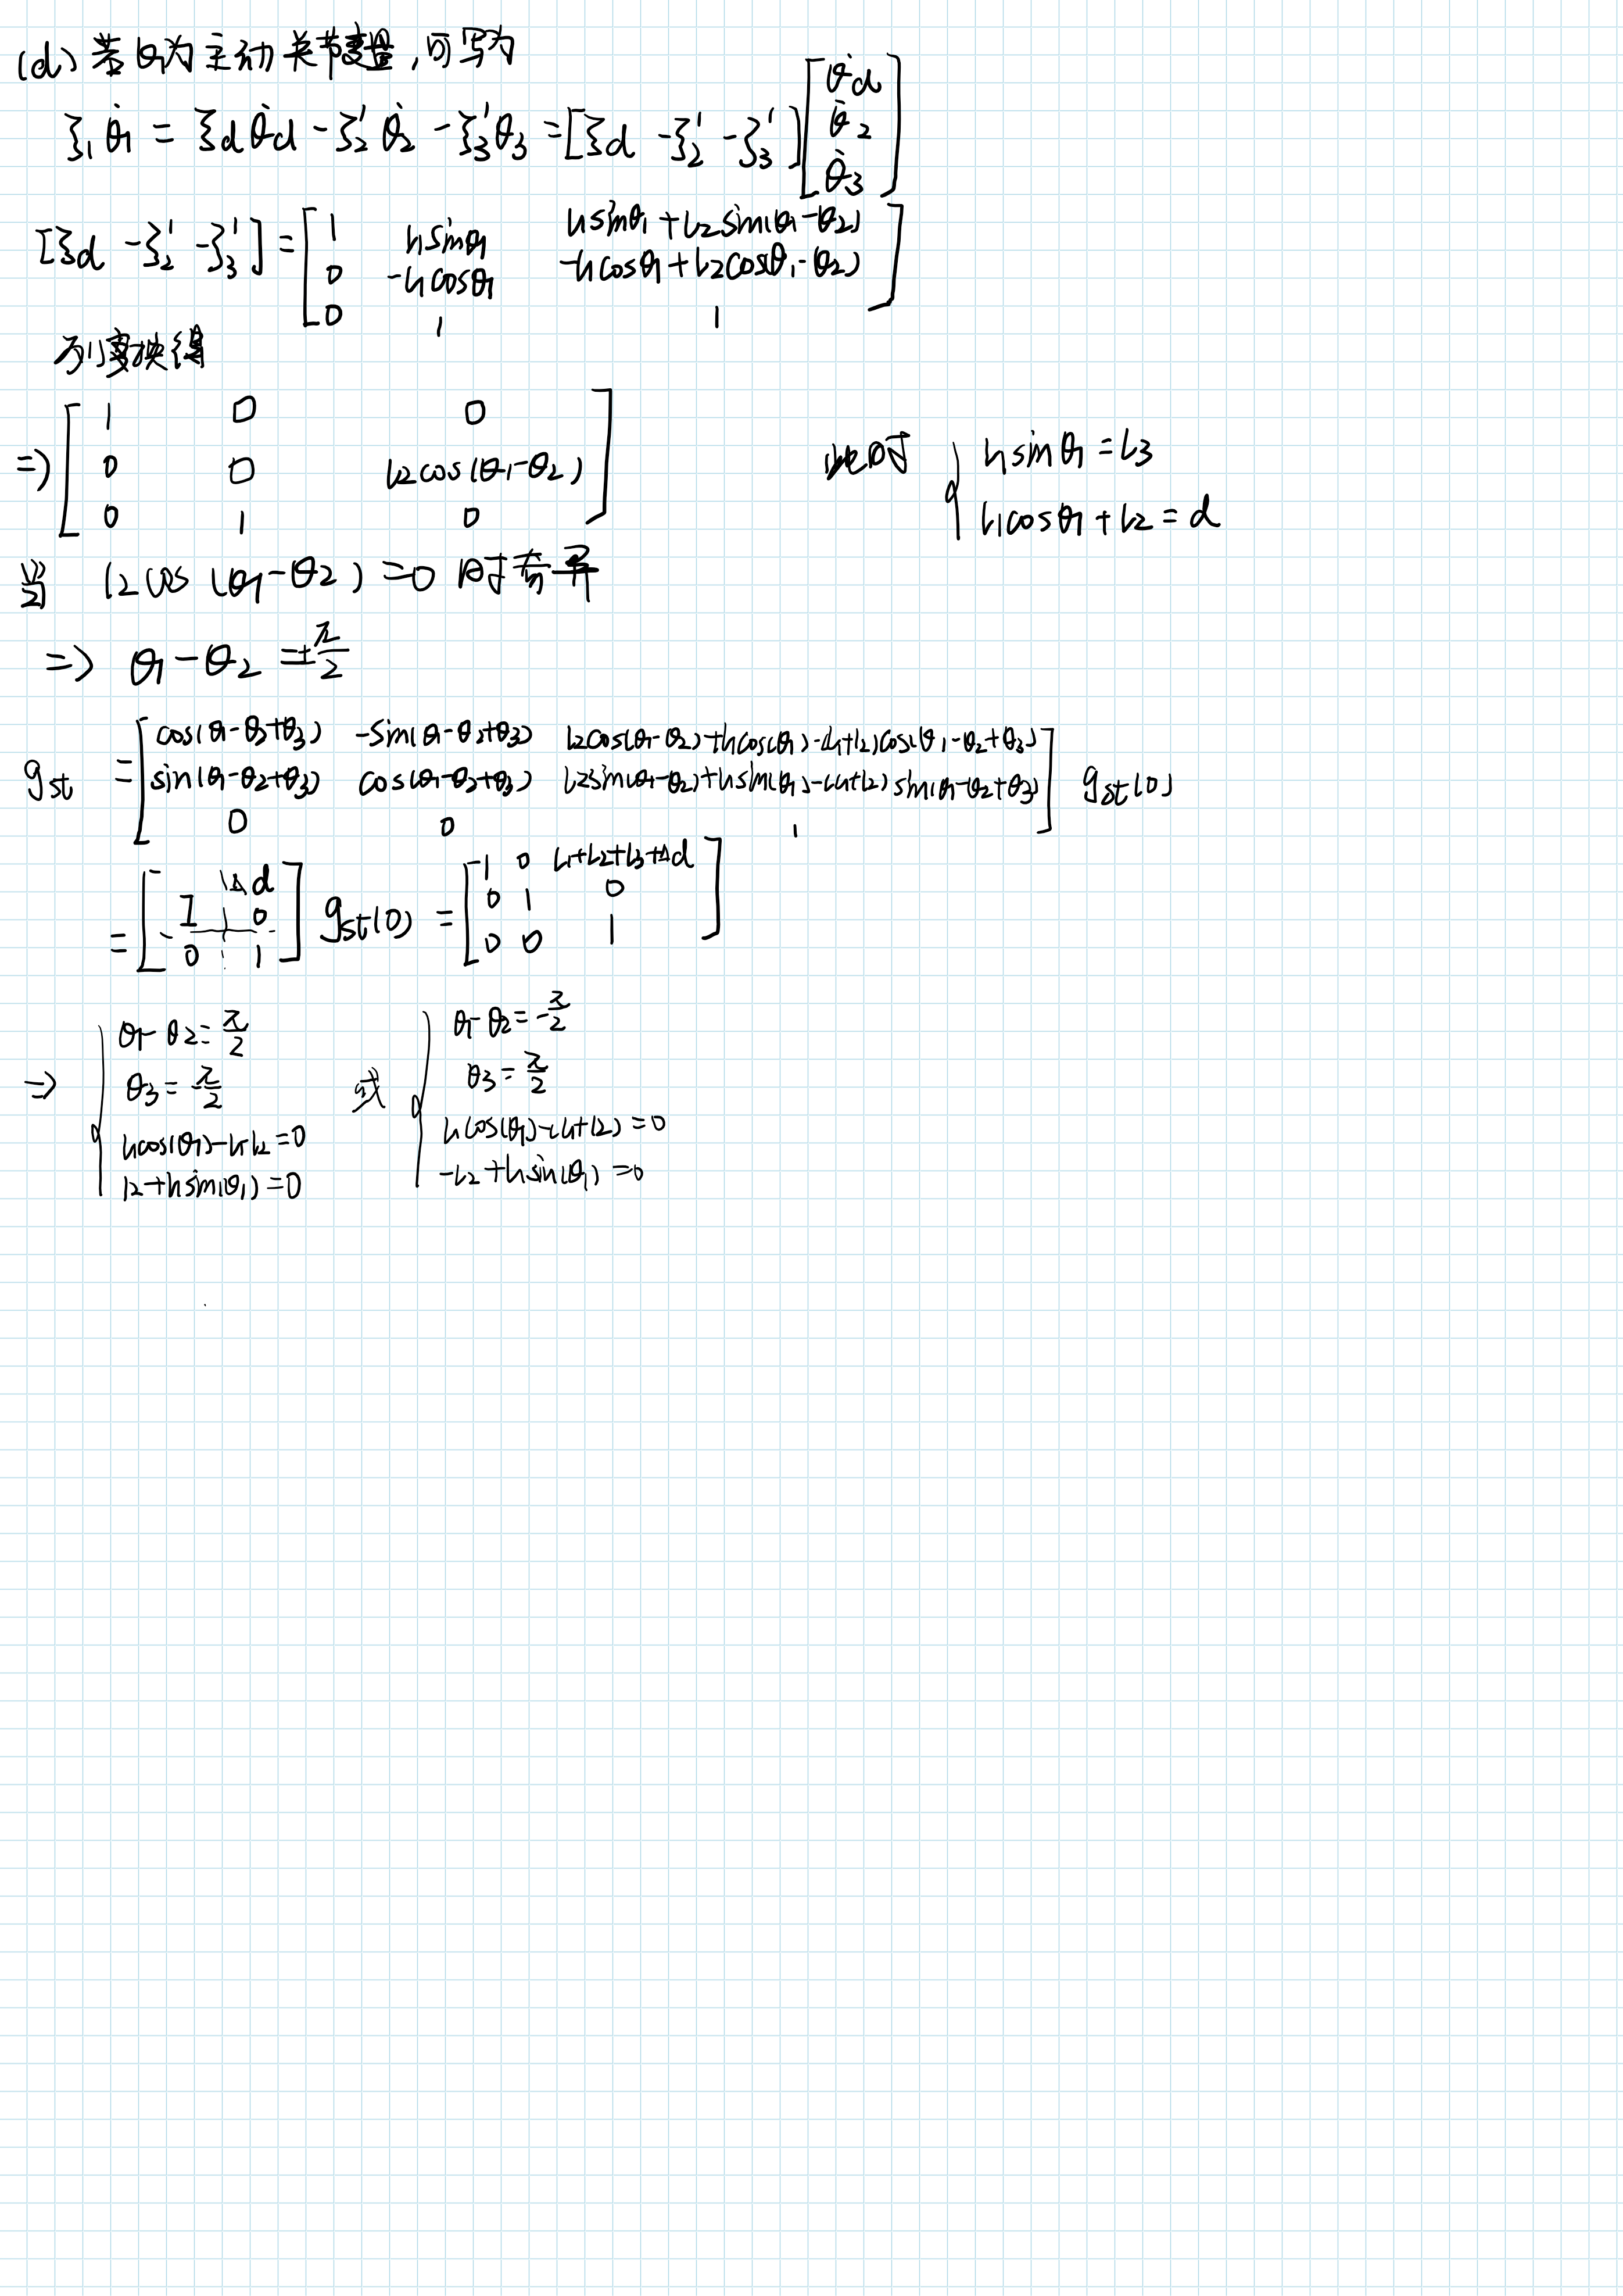 (d) 若θ1为主动关节变量,可写为
ξ1 θ̇1 = ξd θ̇d - ξ2' θ̇2 - ξ3' θ3 = [ξd -ξ2' -ξ3'] [θ̇d θ̇2 θ̇3]
[ξd -ξ2' -ξ3'] = [1 l1sinθ1 l1sinθ1+l2sin(θ1-θ2)
0 -l1cosθ1 -l1cosθ1+l2cos(θ1-θ2)
0 1 1]
列变换得
=> [1 0 0
0 0 l2cos(θ1-θ2)
0 1 0]
此时 { l1sinθ1 = l3
l1cosθ1 + l2 = d
当 l2cos(θ1-θ2) = 0 时奇异
=> θ1-θ2 = ±π/2
gst = [cos(θ1-θ2+θ3) -sin(θ1-θ2+θ3) l2cos(θ1-θ2)+l1cos(θ1)-(l1+l2)cos(θ1-θ2+θ3)
sin(θ1-θ2+θ3) cos(θ1-θ2+θ3) l2sin(θ1-θ2)+l1sin(θ1)-(l1+l2)sin(θ1-θ2+θ3)
0 0 1] gst(0)
= [I Δd 0
0 1] gst(0) = [-1 0 l1+l2+l3+Δd
0 1 0
0 0 1]
=> { θ1-θ2 = π/2
θ3 = -π/2
l1cos(θ1)-l1-l2 = 0
l2+l1sin(θ1) = 0
或 { θ1-θ2 = -π/2
θ3 = π/2
l1cos(θ1)-(l1+l2) = 0
-l2+l1sin(θ1) = 0